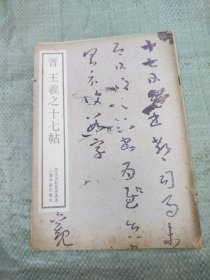 十七日先書郗司馬未
去即日得足下書為慰先書
以具示復數字
晋 王羲之十七帖
上海书画出版社